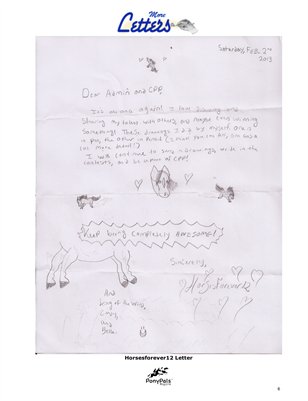 More
Letters
Saturday, Feb. 2nd
2013
Dear Admin and CPP,
It's me again! I love drawing and
Sharing my talent with others, and maybe even winning
Something. These drawings I did by myself. One is
in pen, the other in Pencil
I will continue to send in drawings, write in the
contests, and be a part of CPP!
Keep being Completely AWESOME!
Sincerely,
Horsesforever12
And
King of the Wind,
and
Bella.
Horsesforever12 Letter
PonyPals